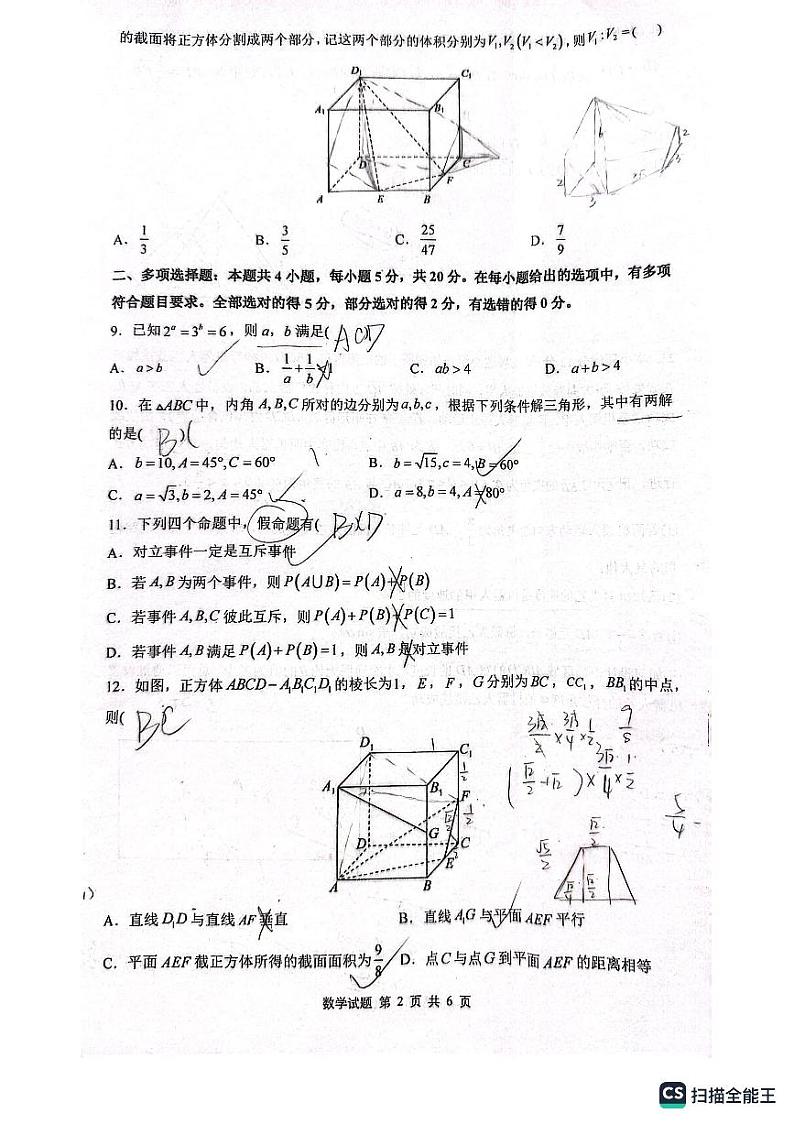 的截面将正方体分割成两个部分，记这两个部分的体积分别为V₁,V₂(V₁<V₂)，则V₁:V₂=(  )
D₁ C₁
A₁ B₁
D C
F
A E B
2 6 2 3
3
A. 1/3 B. 3/5 C. 25/47 D. 7/9
二、多项选择题：本题共4小题，每小题5分，共20分。在每小题给出的选项中，有多项
符合题目要求。全部选对的得5分，部分选对的得2分，有选错的得0分。
9．已知2ᵃ=3ᵇ=6，则a，b满足( ACD
A．a>b B．1/a+1/b<1 C．ab>4 D．a+b>4
10．在△ABC中，内角A,B,C所对的边分别为a,b,c，根据下列条件解三角形，其中有两解
的是( BC
A．b=10,A=45°,C=60° B．b=√15,c=4,B=60°
C．a=√3,b=2,A=45° D．a=8,b=4,A=80°
11．下列四个命题中，假命题有( BCD
A．对立事件一定是互斥事件
B．若A,B为两个事件，则P(A∪B)=P(A)+P(B)
C．若事件A,B,C彼此互斥，则P(A)+P(B)+P(C)=1
D．若事件A,B满足P(A)+P(B)=1，则A,B是对立事件
12．如图，正方体ABCD-A₁B₁C₁D₁的棱长为1，E，F，G分别为BC，CC₁，BB₁的中点，
则( BC
3√2/2×3√2/4×1/2 9/8
(√2/2+√2)×3√2/4×1/2
5/4
D₁ 1 C₁
1/2
A₁ B₁ F
1/2
√2/2 G
D C
E
A B
√2/2
√5/2
√2/4 √2/2
A．直线D₁D与直线AF垂直 B．直线A₁G与平面AEF平行
C．平面AEF截正方体所得的截面面积为9/8 D．点C与点G到平面AEF的距离相等
数学试题 第 2 页 共 6 页
CS 扫描全能王